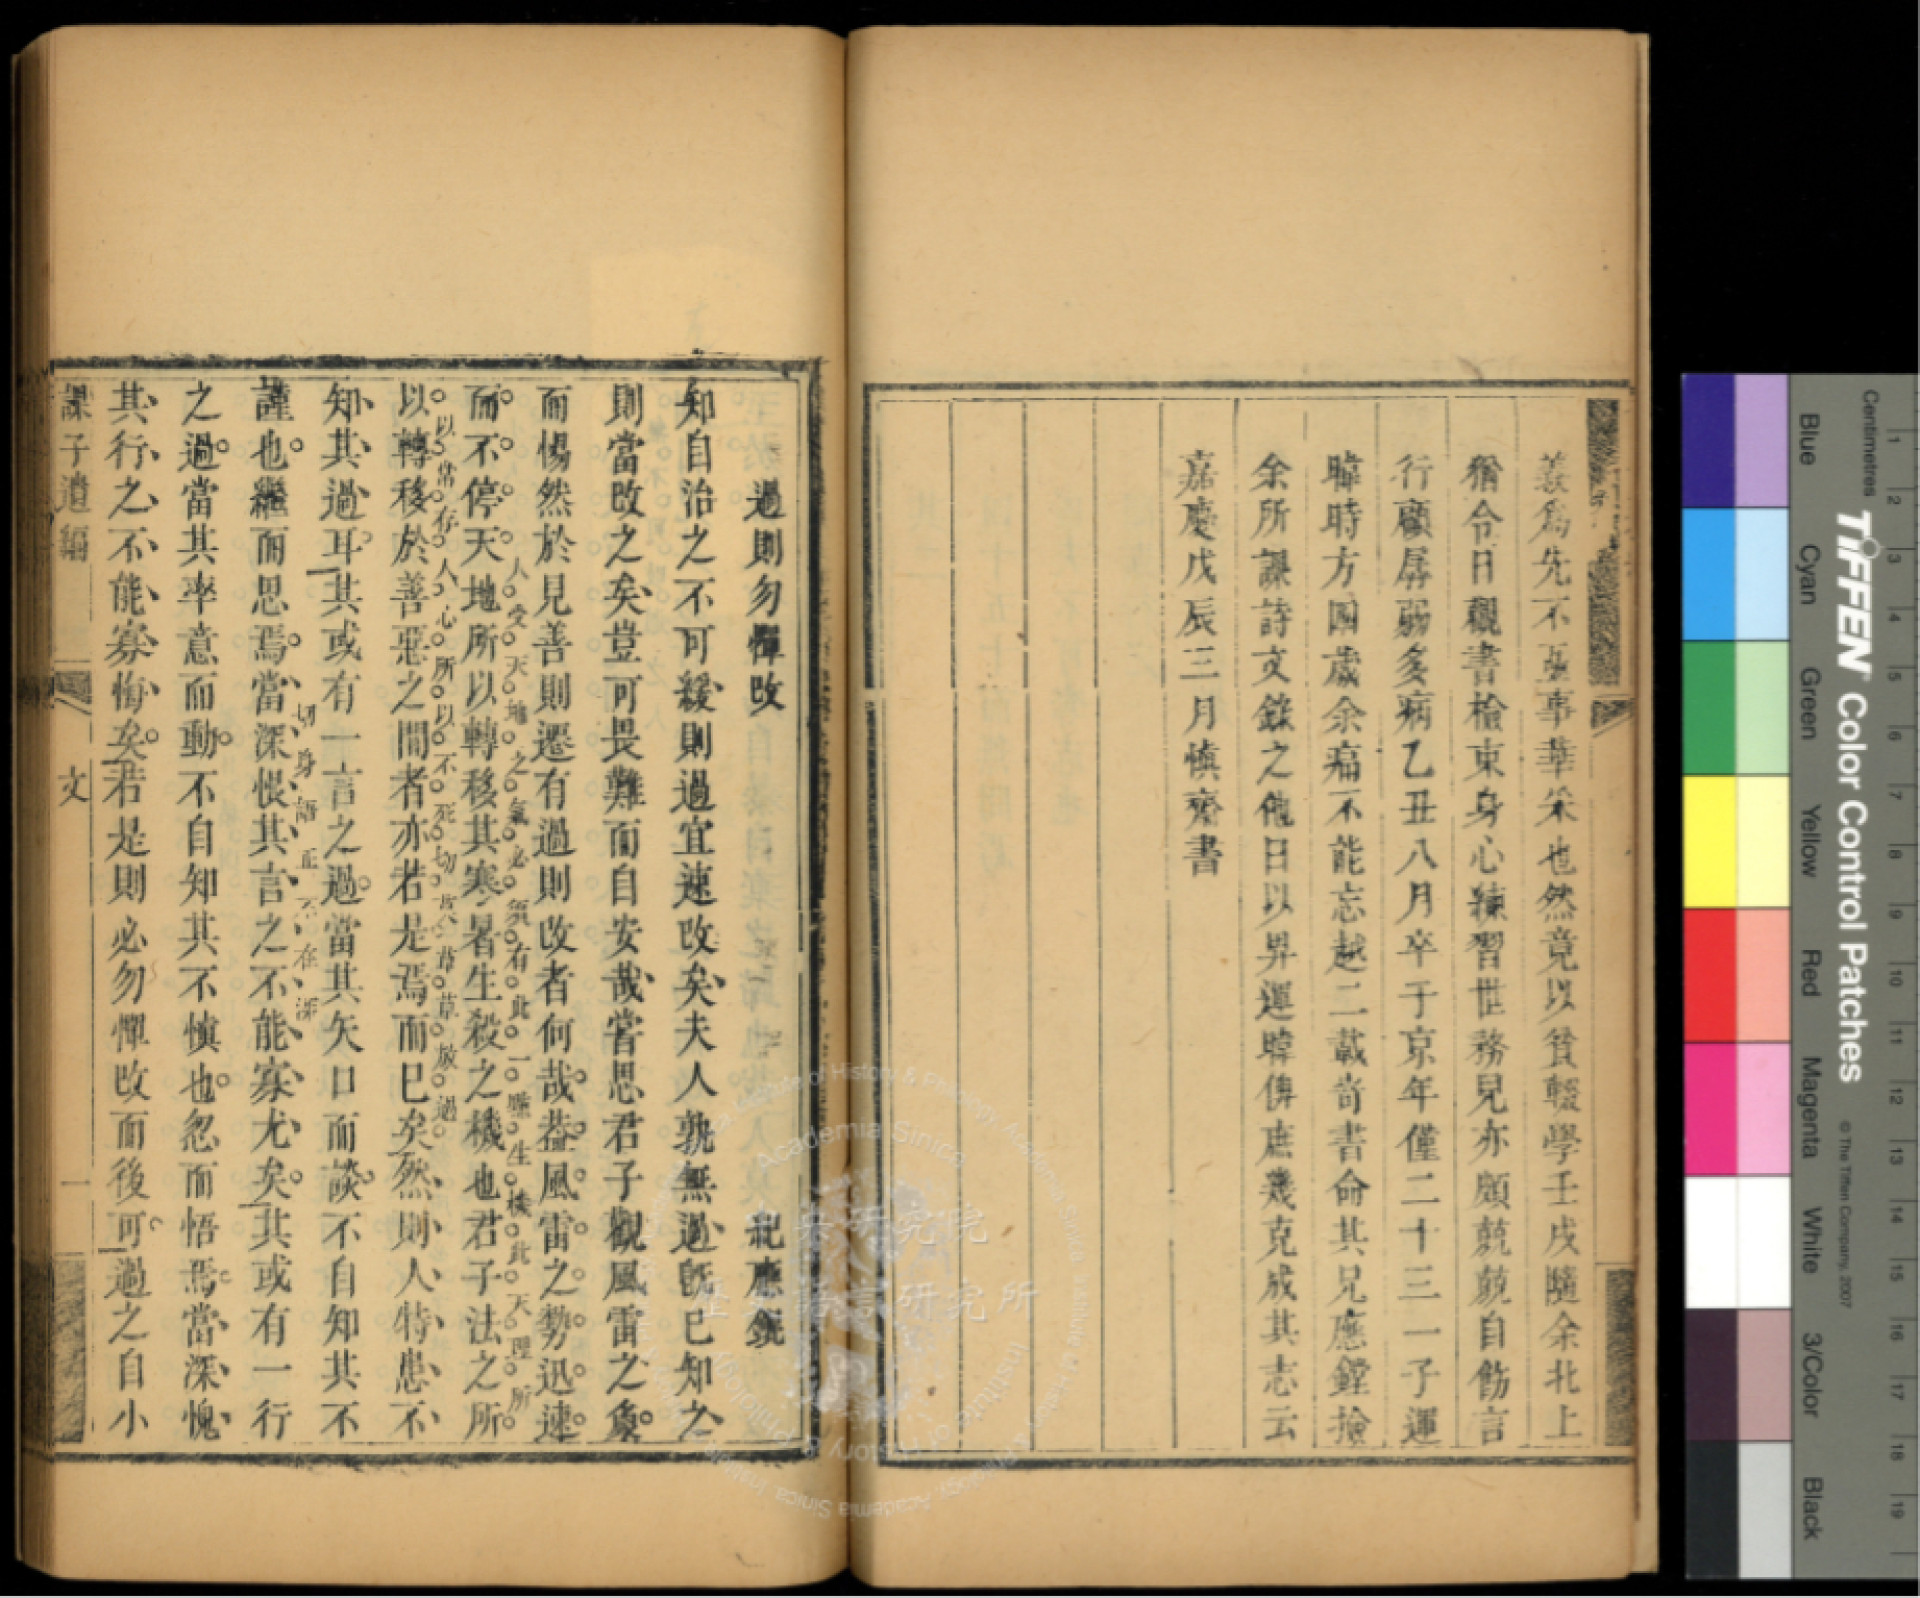 義為先不亟事華采也然竟以貧輟學壬戌隨余北上
猶令日觀書檢束身心練習世務見亦頗兢兢自飭言
行顧孱弱多病乙丑八月卒于京年僅二十三一子運
暐時方周歲余痛不能忘越二載寄書命其兄應鏜撿
余所課詩文錄之他日以畀運暐俾庶幾克成其志云
嘉慶戊辰三月慎齋書
過則勿憚改 紀應銑
知自治之不可緩則過宜速改矣夫人孰無過既已知之
則當改之矣豈可畏難而自安哉嘗思君子觀風雷之象
而惕然於見善則遷有過則改者何哉葢風雷之勢迅速
人受天地之氣必須有此一縣生機此天理所
而不停天地所以轉移其寒暑生殺之機也君子法之所
以常存人心所以不死切莫草草放過
以轉移於善惡之間者亦若是焉而已矣然則人特患不
知其過耳其或有一言之過當其矢口而談不自知其不
切身語正不在深
謹也繼而思焉當深悵其言之不能寡尤矣其或有一行
之過當其率意而動不自知其不慎也忽而悟焉當深愧
其行之不能寡悔矣若是則必勿憚改而後可過之自小
課子遺編 文 一
中央研究院
歷史語言研究所
Academia Sinica
Institute of History & Philology
Centimetres
TIFFEN Color Control Patches
© The Tiffen Company, 2007
Blue Cyan Green Yellow Red Magenta White 3/Color Black
1 2 3 4 5 6 7 8 9 10 11 12 13 14 15 16 17 18 19